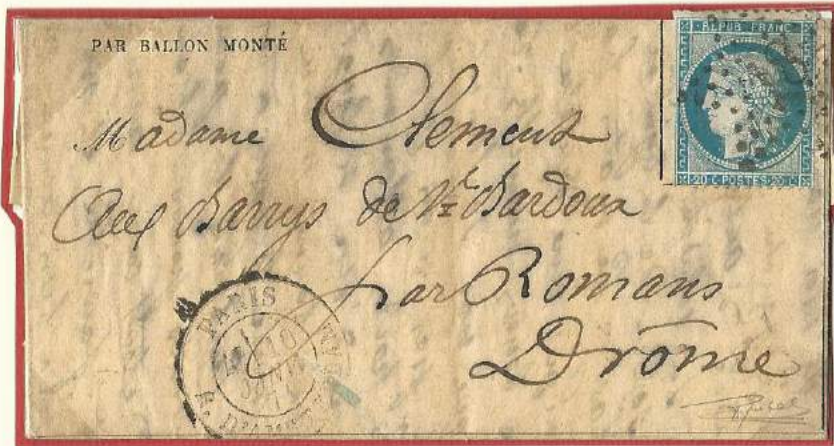 PAR BALLON MONTÉ
REPUB FRANC
20 C POSTES 20 C
Madame Clement
Aux Barrys de St Bardoux
par Romans
Drôme
PARIS